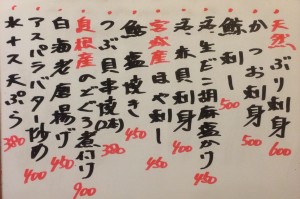 天然ぶり刺身 600
かつお刺身 500
鯨刺し 500
生どこ胡麻塩かり 450
赤貝刺身 400
宮城産ほや刺し 450
鮭塩焼き 450
つぶ貝串(2本) 380
島根産のどぐろ煮付け 900
白海老唐揚げ 450
アスパラバター炒め 400
水ナス天ぷら 380